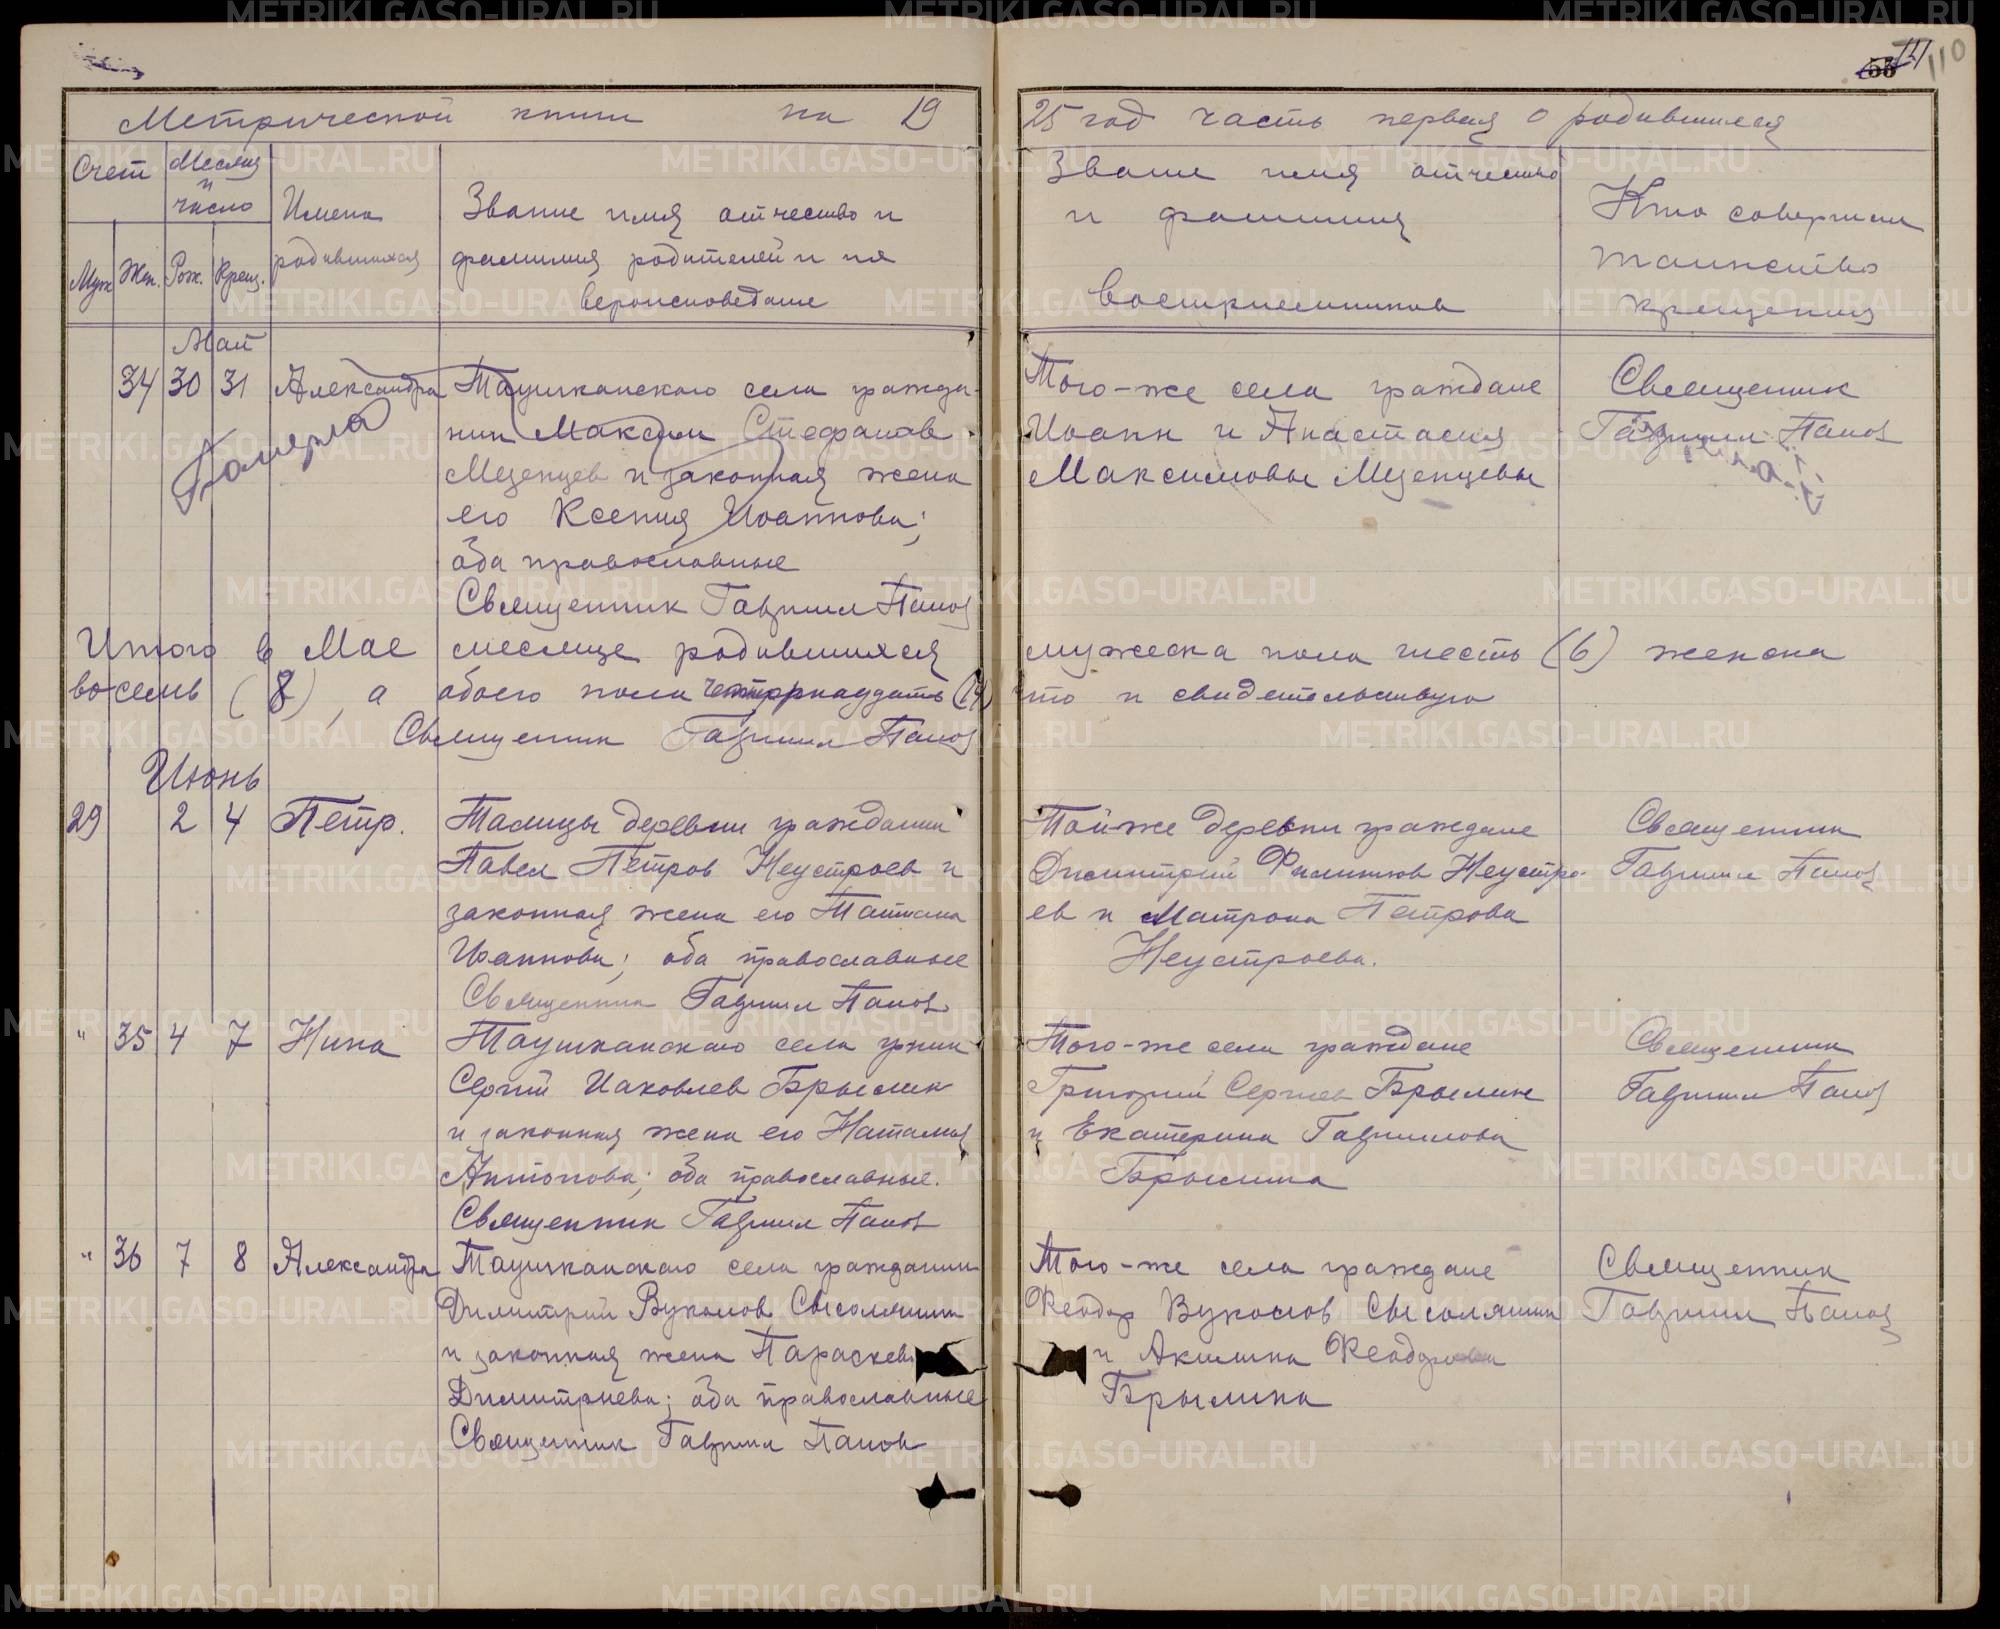 55
111
110
Метрической книги на 19
25 год часть первая о родившихся
Счет
Месяц
и
число
Муж
Жен.
Рож.
Крещ.
Имена
родившихся
Звание имя отчество и
фамилия родителей и их
вероисповедание
Звание имя отчество
и фамилия
восприемников
Кто совершил
таинство
крещения
Май
34 30 31 Александра
Померла
Таушканского села гражда-
нин Максим Стефанов
Мезенцев и законная жена
его Ксения Иоаннова;
оба православные
Священник Гавриил Попов
Того-же села граждане
Иоанн и Анастасия
Максимовы Мезенцевы
Священник
Гавриил Попов
Итого в Мае месяце родившихся мужеска пола шесть (6) женска
восемь (8), а обоего пола четырнадцать (14) что и свидетельствую
Священник Гавриил Попов
Июнь
29 2 4 Петр.
Талицы деревни гражданин
Павел Петров Неустроев и
законная жена его Татиана
Иоаннова; оба православные
Священник Гавриил Попов
Той-же деревни граждане
Димитрий Филиппов Неустро-
ев и Матрона Петрова
Неустроева.
Священник
Гавриил Попов
" 35 4 7 Нина
Таушканского села гр-нин
Сергий Иаковлев Брылин
и законная жена его Наталия
Антонова; оба православные.
Священник Гавриил Попов
Того-же села граждане
Григорий Сергиев Брылин
и Екатерина Гавриилова
Брылина
Священник
Гавриил Попов
" 36 7 8 Александра
Таушканского села гражданин
Димитрий Вуколов Сысолятин
и законная жена Параскева
Димитриева; оба православные
Священник Гавриил Попов
Того-же села граждане
Феодор Вуколов Сысолятин
и Акилина Феодорова
Брылина
Священник
Гавриил Попов
METRIKI.GASO-URAL.RU